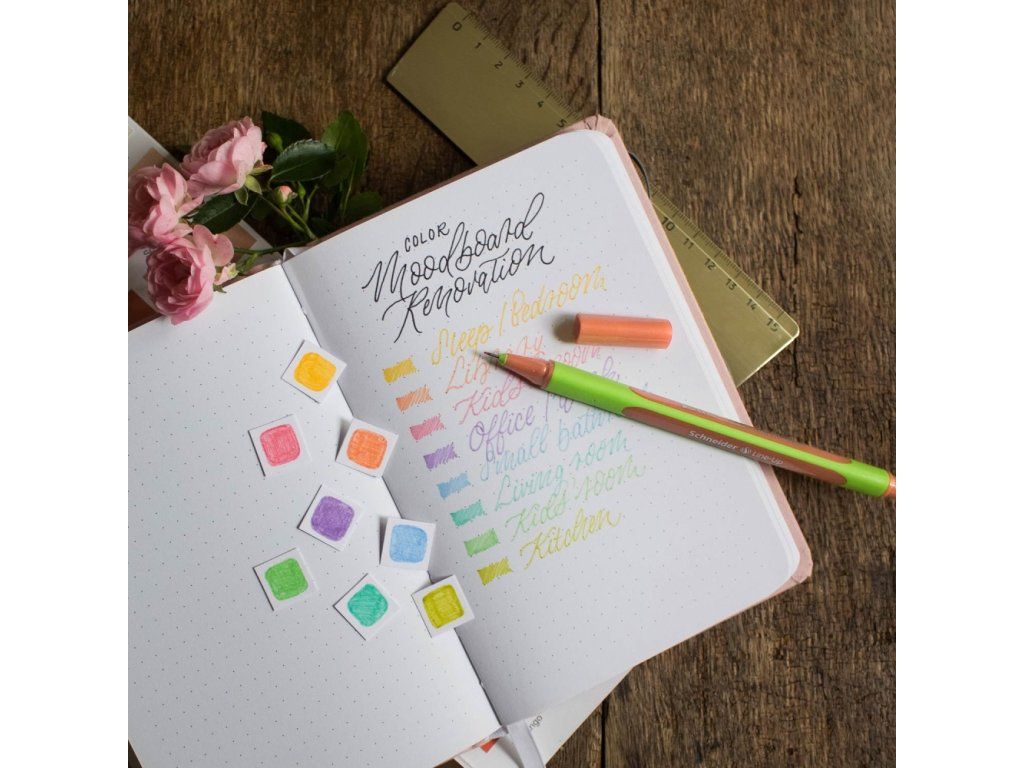 0 1 2 3 4 5
10 11 12 13 14 15
COLOR
Moodboard
Renovation
Sleep / Bedroom
Library
Kid's room
Office /
Small bathr
Living room
Kid's room
Kitchen
Schneider Line-Up
ngo